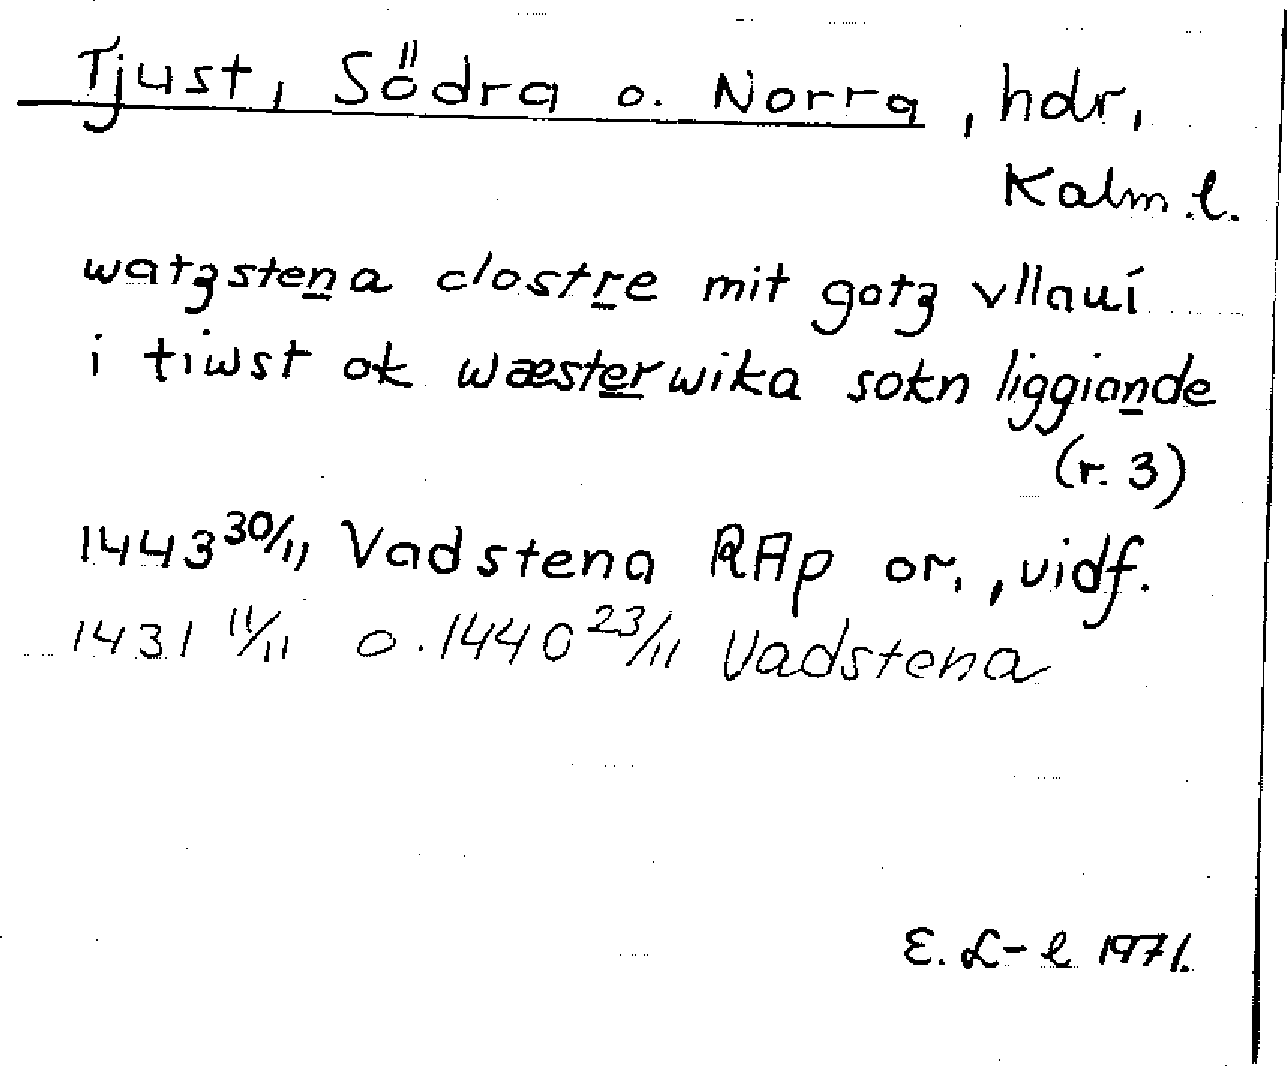 Tjust, Södra o. Norra, hdr,
Kalm.l.
watʒstena clostre mit gotʒ vllauí
i tiwst ok wæsterwika sokn liggiande
(r. 3)
1443 30/11 Vadstena RAp or., vidf.
1431 11/11 o. 1440 23/11 Vadstena
E. L-l 1971.